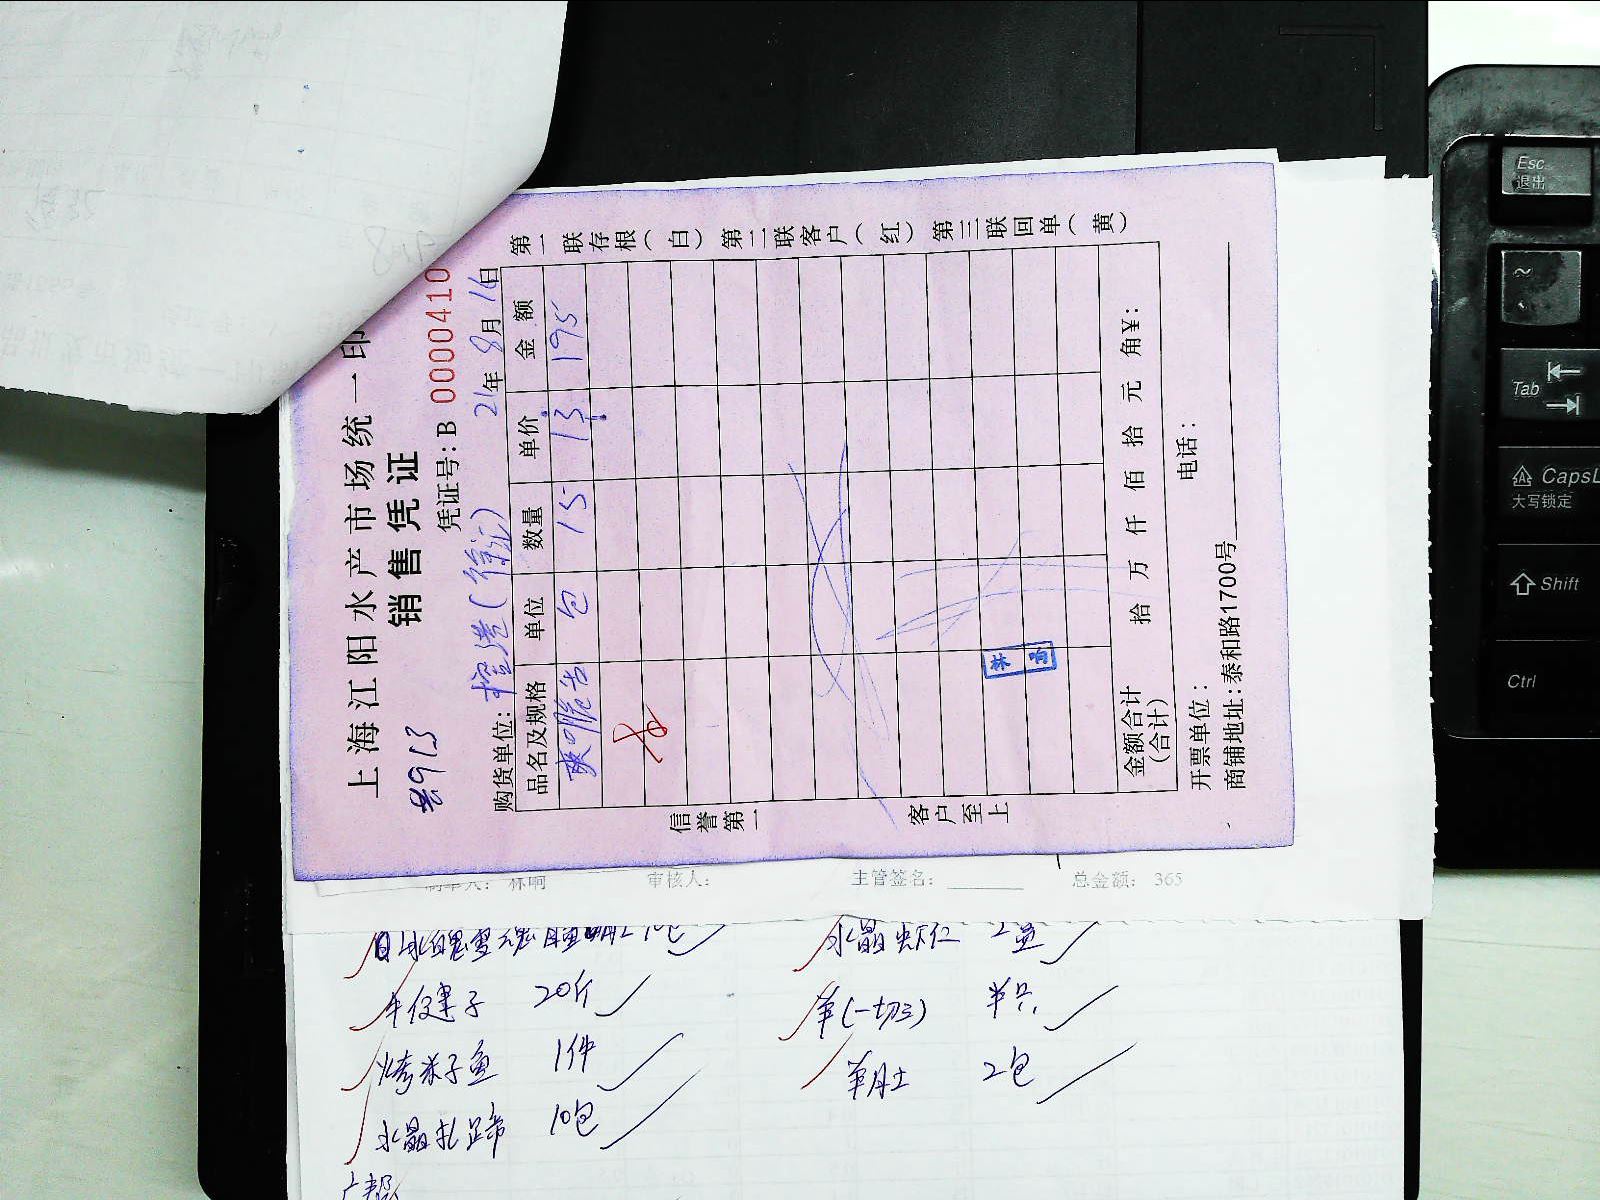 上海江阳水产市场统一印
销售凭证
凭证号:B 0000410
购货单位:
21年8月16日
品名及规格 单位 数量 单价 金额
爽口脆舌 包 15 13 195
金额合计(合计) 拾 万 仟 佰 拾 元 角¥:
开票单位: 电话:
商铺地址:泰和路1700号
信誉第一 客户至上
第一联存根(白) 第二联客户(红) 第三联回单(黄)
林响
制单人: 林响 审核人: 主管签名: 总金额: 365
水晶虾仁 2盒
牛腱子 20斤
羊(一切三) 半只
烤米子鱼 1件
羊肚 2包
水晶扎蹄 10包
Esc 退出
Tab
CapsL 大写锁定
Shift
Ctrl